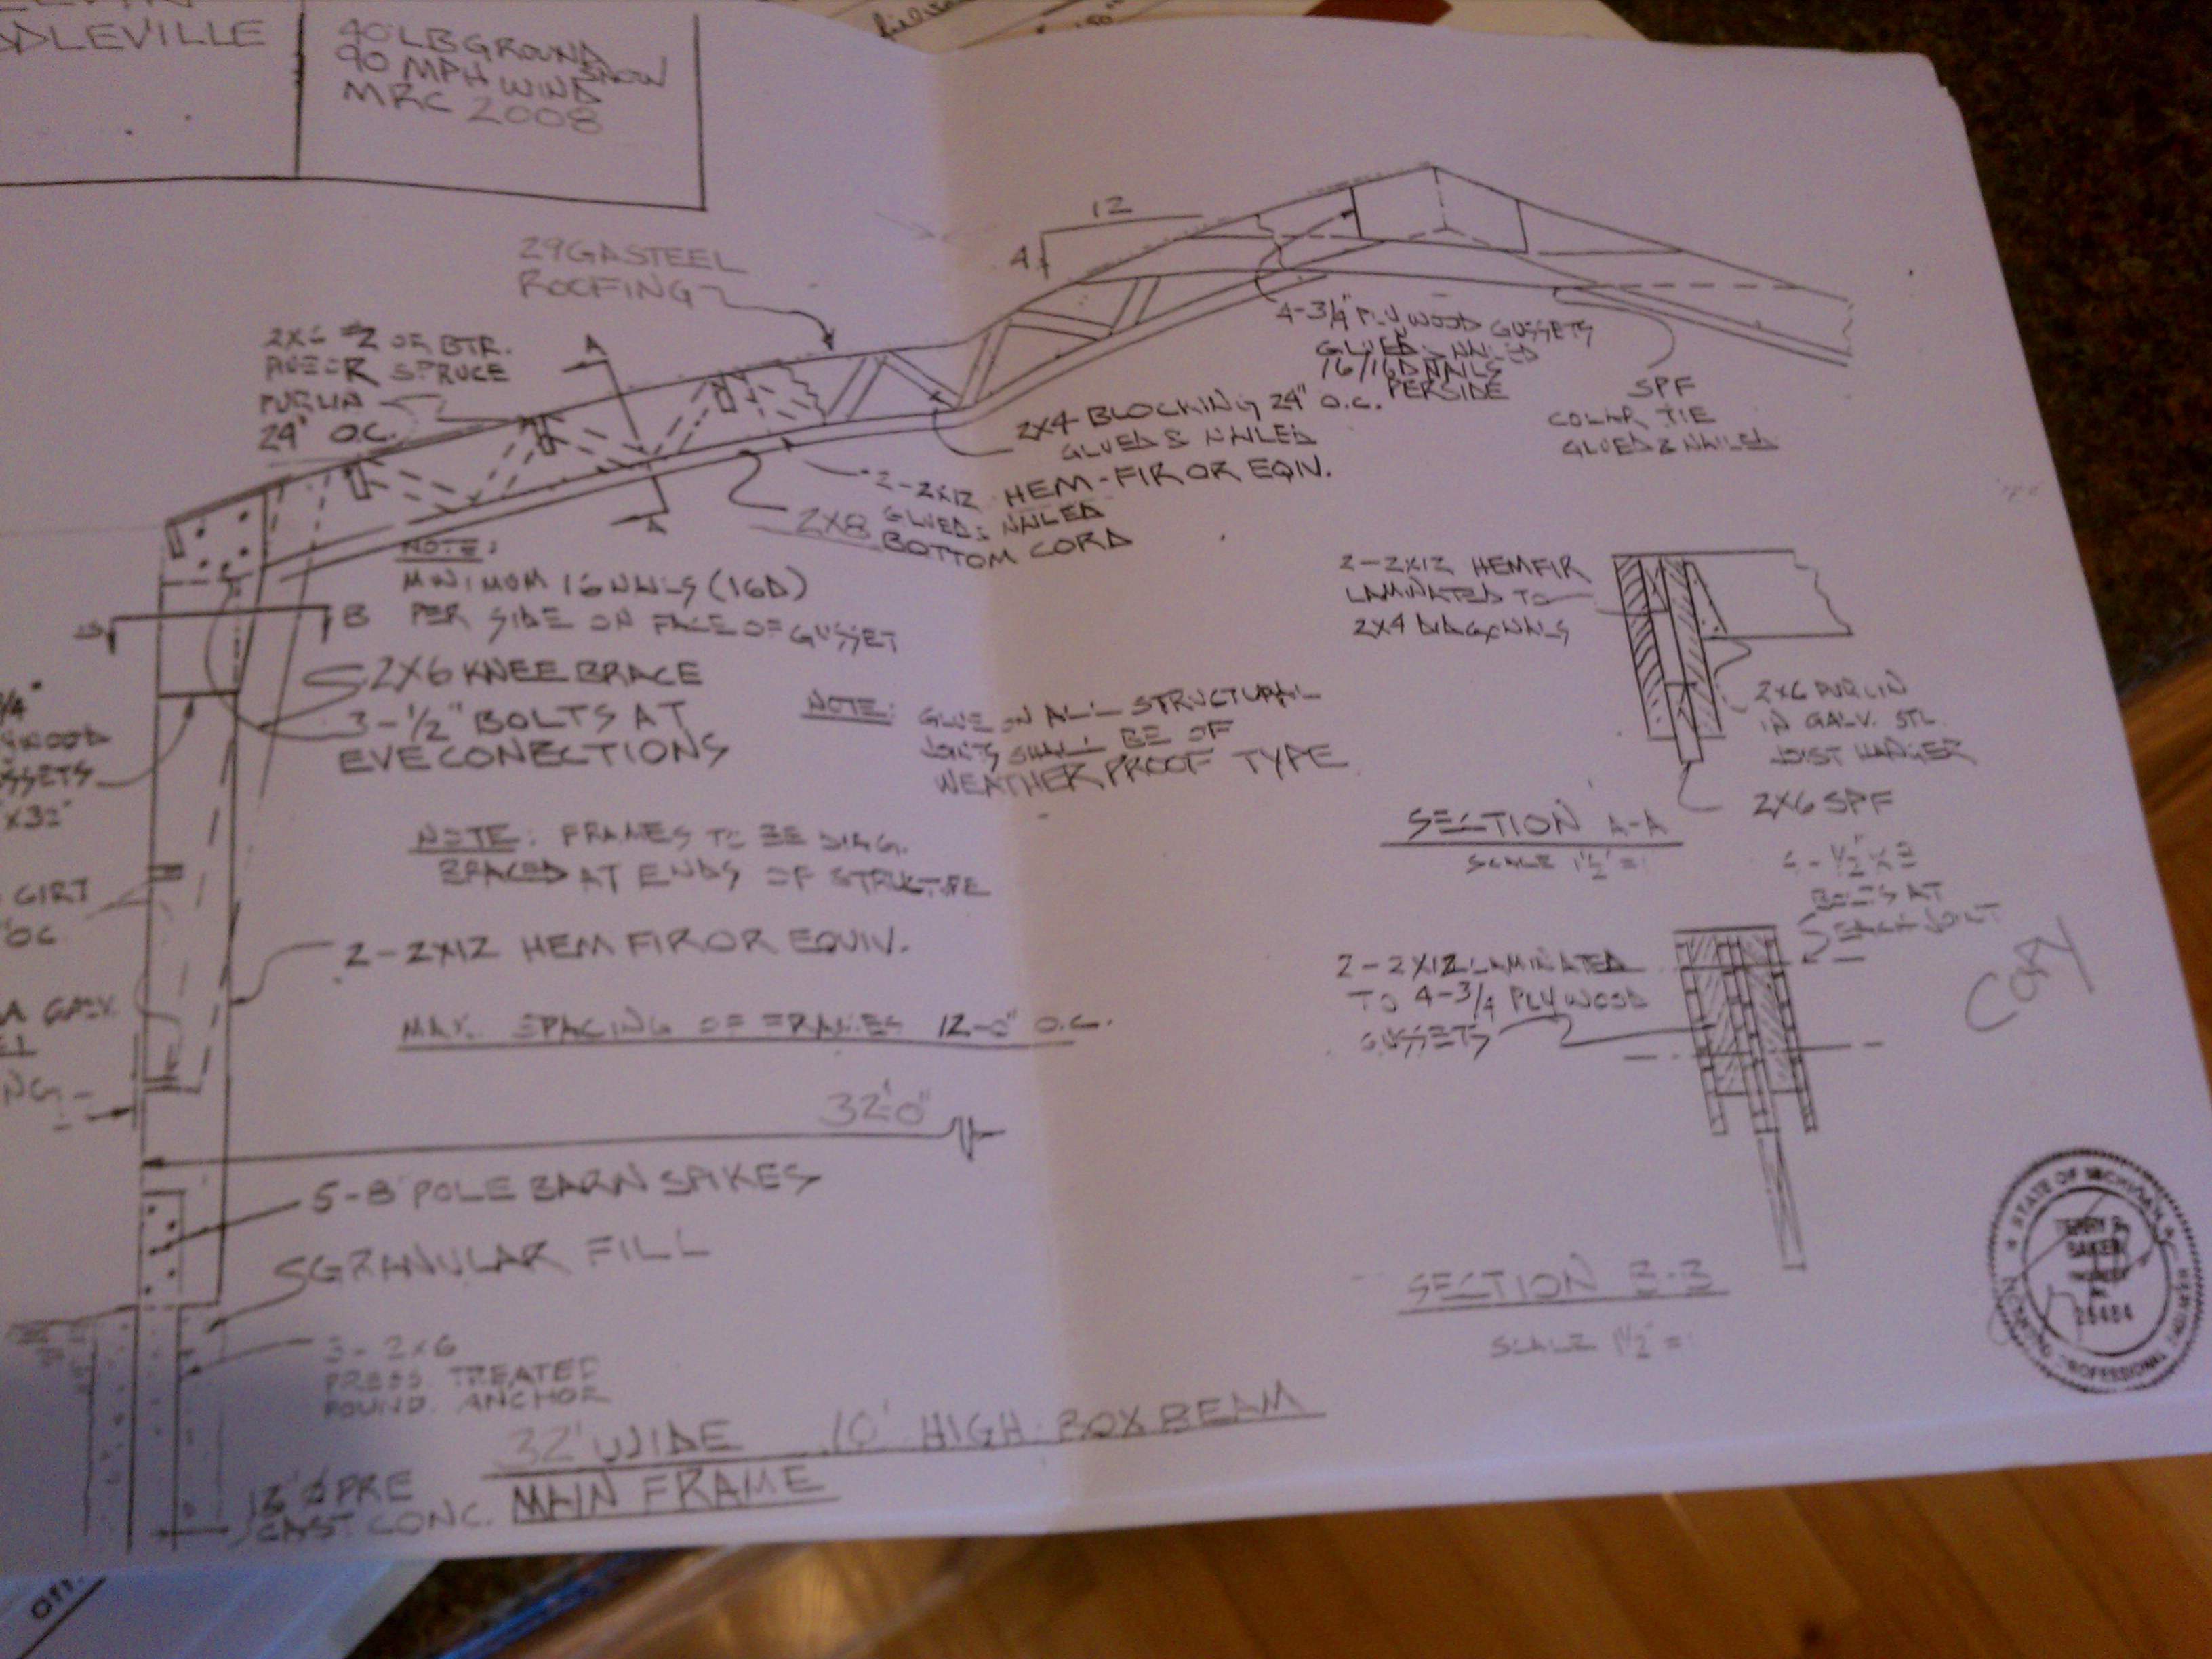 DLEVILLE
40 LB GROUND
SNOW
90 MPH WIND
MRC 2008
12
4
29GA STEEL
ROOFING
2X6 #2 OR BTR.
SPRUCE
PURLIN
24" O.C.
A
A
4-3/4" PLYWOOD GUSSETS
GLUED & NAILED
16/16D NAILS
PER SIDE
SPF
COLAR TIE
GLUED & NAILED
2X4 BLOCKING 24" O.C.
GLUED & NAILED
2-2X12 HEM-FIR OR EQIV.
GLUED & NAILED
2X8 BOTTOM CORD
NOTE:
MINIMUM 16 NAILS (16D)
PER SIDE ON FACE OF GUSSET
B
2X6 KNEE BRACE
3-1/2" BOLTS AT
EVE CONECTIONS
NOTE: GLUE ON ALL STRUCTURAL
JOINTS SHALL BE OF
WEATHER PROOF TYPE
/4"
SSETS
X32"
NOTE: FRAMES TO BE DIAG.
BRACED AT ENDS OF STRUCTURE
GIRT
OC
2-2X12 HEM FIR OR EQUIV.
GALV.
NG
MAX. SPACING OF FRAMES 12-0" O.C.
32'0"
5-8" POLE BARN SPIKES
GRANULAR FILL
3-2X6
PRESS TREATED
FOUND. ANCHOR
PRE
CAST CONC.
32' WIDE 10' HIGH BOX BEAM
MAIN FRAME
2-2X12 HEMFIR
LAMINATED TO
2X4 DIAGONALS
2X6 PURLIN
IN GALV. STL.
JOIST HANGER
2X6 SPF
SECTION A-A
SCALE 1 1/2" = 1
BOLTS AT
EACH JOINT
2-2X12 LAMINATED
TO 4-3/4 PLYWOOD
GUSSETS
SECTION B-B
SCALE 1 1/2" =
COPY
STATE OF MICHIGAN
BAKER
PROFESSIONAL
Off.